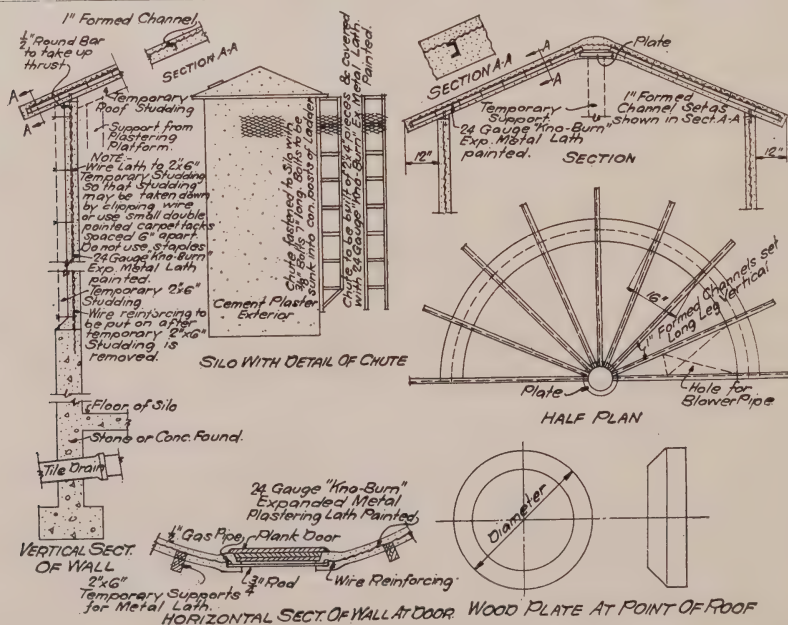 1" Formed Channel
1/2" Round Bar
to take up
thrust
SECTION A-A
A
A
Temporary
Roof Studding
Support from
Plastering
Platform.
NOTE:-
Wire Lath to 2"x6"
Temporary Studding
so that studding
may be taken down
by clipping wire
or use small double
pointed carpet tacks
spaced 6" apart.
Do not use staples
24 Gauge "Kno-Burn"
Exp. Metal Lath
painted.
Temporary 2"x6"
Studding
Wire reinforcing to
be put on after
temporary 2"x6"
Studding is
removed.
Floor of Silo
Stone or Conc. Found.
Tile Drain
VERTICAL SECT.
OF WALL
Cement Plaster
Exterior
Chute fastened to Silo with
Bolts 7" long. Bolts to be
sunk into con. posts of Ladder
Chute to be built of 2"x4" pieces & covered
with 24 Gauge "Kno-Burn" Ex. Metal Lath.
Painted.
SILO WITH DETAIL OF CHUTE
SECTION A-A
A
A
Plate
Temporary
Support
1" Formed
Channel set as
shown in Sect. A-A
24 Gauge "Kno-Burn"
Exp. Metal Lath
painted.
12"
12"
SECTION
16"
1" Formed Channels set
Long Leg Vertical
Plate
Hole for
Blower Pipe
HALF PLAN
24 Gauge "Kno-Burn"
Expanded Metal
Plastering Lath Painted
1/2" Gas Pipe
Plank Door
3/4" Rod
Wire Reinforcing
2"x6"
Temporary Supports
for Metal Lath.
HORIZONTAL SECT. OF WALL AT DOOR
Diameter
WOOD PLATE AT POINT OF ROOF